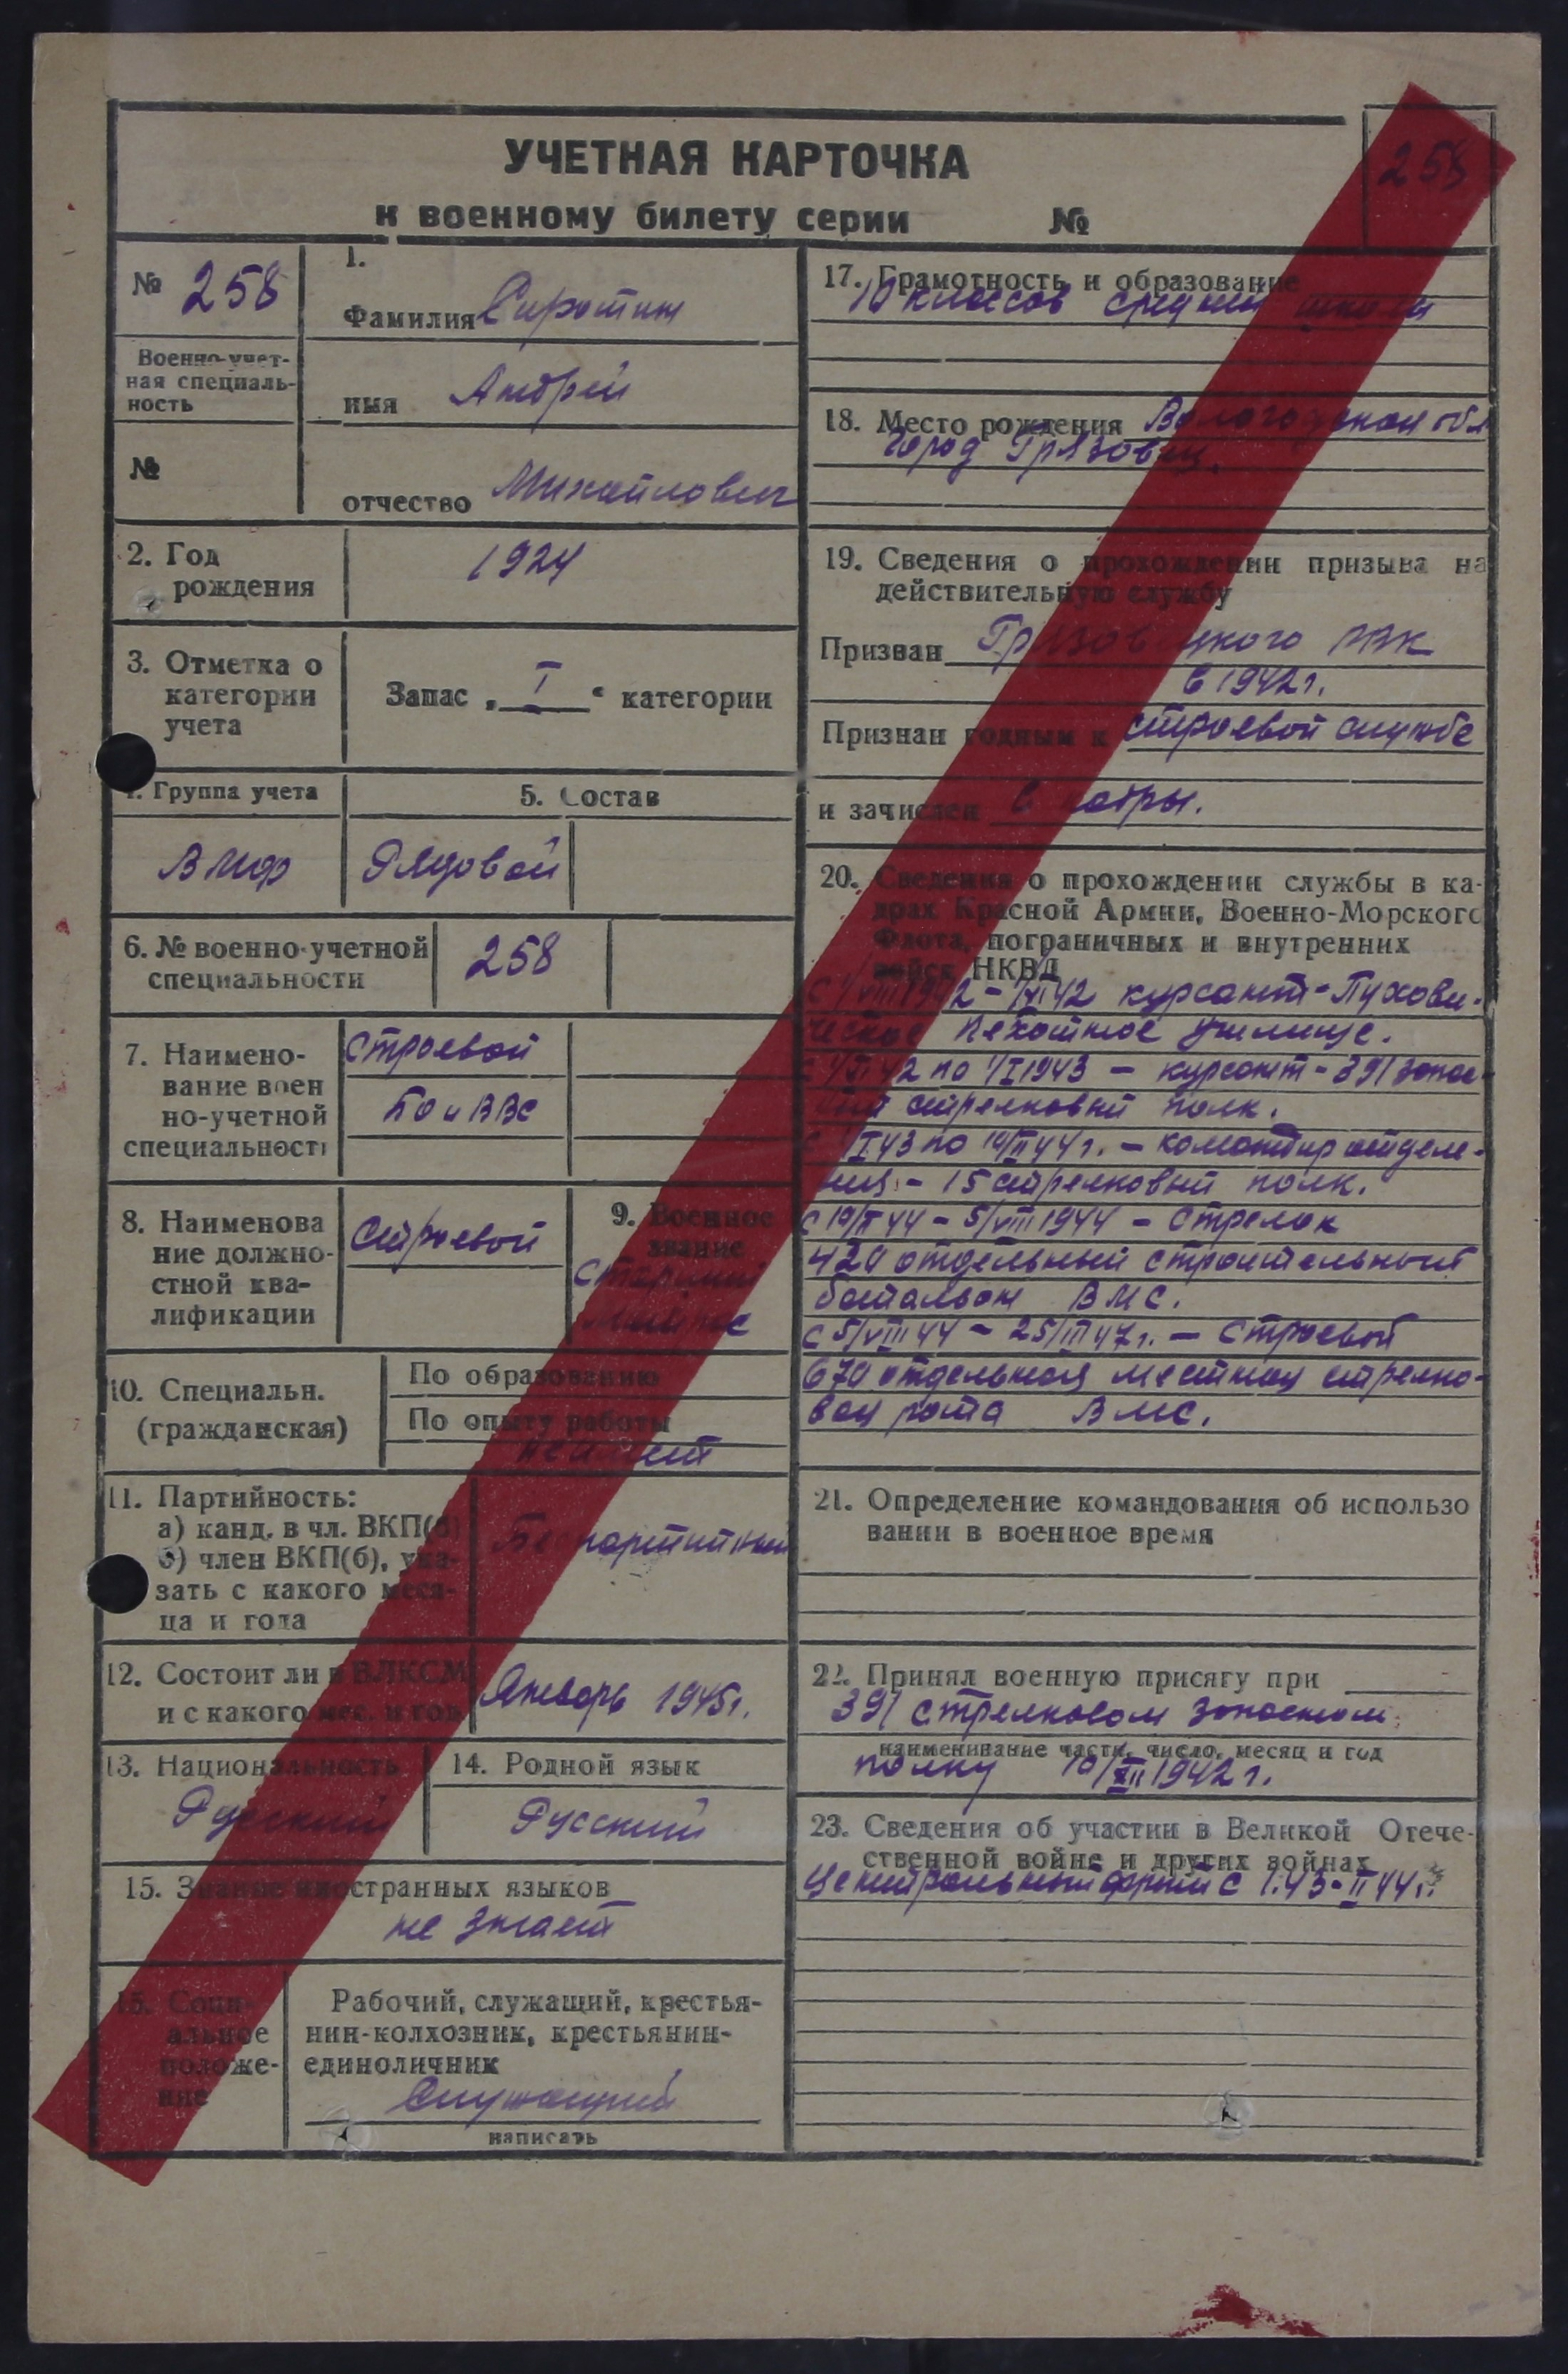 258
УЧЕТНАЯ КАРТОЧКА
к военному билету серии №
№ 258
Военно-учет-
ная специаль-
ность
№
1.
Фамилия Сиротин
имя Андрей
отчество Михайлович
2. Год
рождения
1924
3. Отметка о
категории
учета
Запас „ I “ категории
4. Группа учета
5. Состав
ВМФ
Рядовой
6. № военно-учетной
специальности
258
7. Наимено-
вание воен
но-учетной
специальності
строевой
БО и ВВС
8. Наименова
ние должно-
стной ква-
лификации
Строевой
9. Военное
звание
старший
матрос
10. Специальн.
(гражданская)
По образованию
По опыту работы
не имеет
11. Партийность:
а) канд. в чл. ВКП(б)
б) член ВКП(б), ука-
зать с какого меся-
ца и года
Беспартийный
12. Состоит ли в ВЛКСМ
и с какого мес. и год
Январь 1945г.
13. Национальность
Русский
14. Родной язык
Русский
15. Знание иностранных языков
не знает
15. Соци-
альное
положе-
ние
Рабочий, служащий, крестья-
нин-колхозник, крестьянин-
единоличник
Служащий
написать
17. Грамотность и образование
10 классов средней школы
18. Место рождения Вологодская обл
город Грязовец.
19. Сведения о прохождении призыва на
действительную службу
Призван Грязовецкого РВК
в 1942г.
Признан годным к строевой службе
и зачислен в кадры.
20. Сведения о прохождении службы в ка-
драх Красной Армии, Военно-Морского
Флота, пограничных и внутренних
войск НКВД
С 1/VIII 1942 - 1/XI 42 курсант - Пухови-
ческое пехотное училище.
С 1/XI 42 по 1/I 1943 - курсант - 391 запас-
ной стрелковый полк.
С 1/I 43 по 10/II 44г. - командир отделе-
ния - 15 стрелковый полк.
С 10/II 44 - 5/VIII 1944 - Стрелок
420 отдельный строительный
батальон ВМС.
С 5/VIII 44 - 25/III 47г. - Строевой
670 отдельная местная стрелко-
вая рота ВМС.
21. Определение командования об использо
вании в военное время
22. Принял военную присягу при
391 стрелковом запасном
наименивание части, число, месяц и год
полку 10/XII 1942г.
23. Сведения об участии в Великой Отече-
ственной войне и других войнах
Центральный фронт с I.43-II 44г.